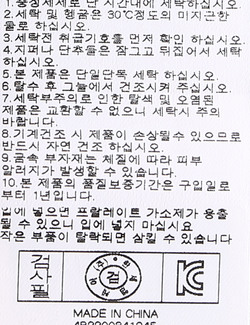 1.중성세제로 단 시간내에 세탁하십시오.
2.세탁 및 헹굼은 30℃정도의 미지근한
물로 하십시오.
3.세탁전 취급기호를 먼저 확인 하십시오.
4.지퍼나 단추들은 잠그고 뒤집어서 세탁
하십시오.
5.본 제품은 단일단독 세탁 하십시오.
6.탈수 후 그늘에서 건조시켜 주십시오.
7.세탁부주의로 인한 탈색 및 오염된
제품은 교환할 수 없으니 세탁시 주의
바랍니다.
8.기계건조 시 제품이 손상될수 있으므로
반드시 자연 건조 하십시오.
9.금속 부자재는 체질에 따라 피부
알러지가 발생할 수 있습니다.
10.본 제품의 품질보증기간은 구입일로
부터 1년입니다.
입에 넣으면 프탈레이트 가소제가 용출
될 수 있으니 입에 넣지 마십시요
작은 부품이 탈락되면 삼킬 수 있습니다
검사필
검
KC
MADE IN CHINA